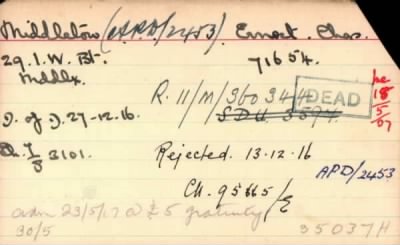 Middleton (APD/2453) Ernest Chas.
29. I.W. Bt. 71654.
Middlx.
R. 11/M/360344 DEAD
18/5/07
D. of D. 27-12-16. SDU
3101. Rejected. 13-12-16
APD/2453
CH. 95665/E
adm 23/5/17 @ £5 gratuity
30/5 35037H